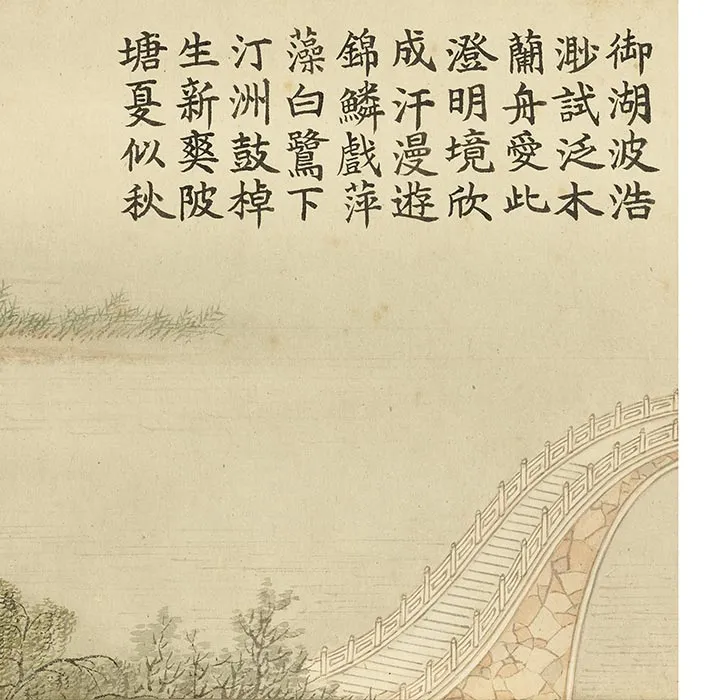 御湖波浩
渺試泛木
蘭舟愛此
澄明境欣
成汗漫遊
錦鱗戲萍
藻白鷺下
汀洲鼓棹
生新爽陂
塘夏似秋